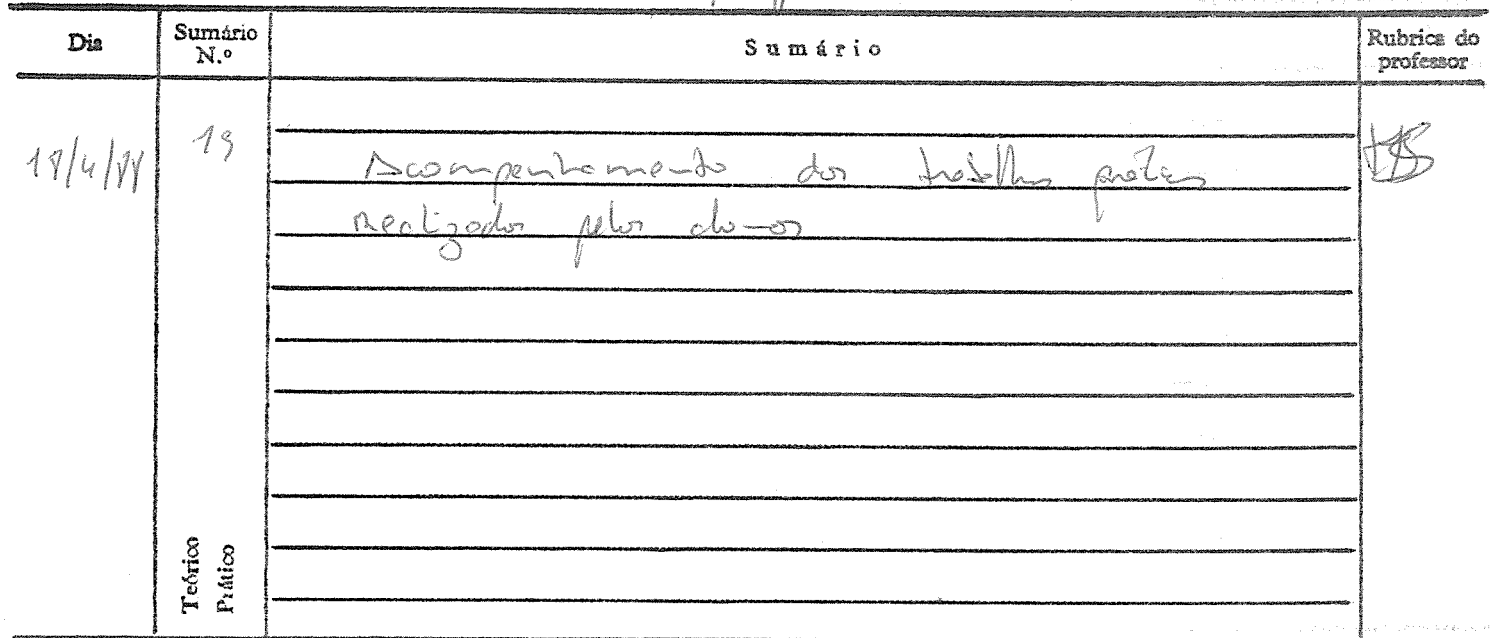 Dia
Sumário N.º
Sumário
Rubrica do professor
18/4/88
19
Acompanhamento dos trabalhos práticos
realizados pelos alunos
Teórico
Prático